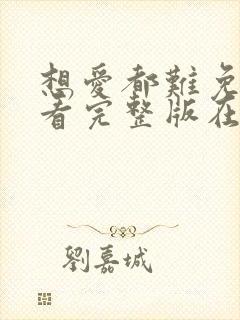 想愛都難免
看完整版在
劉嘉城